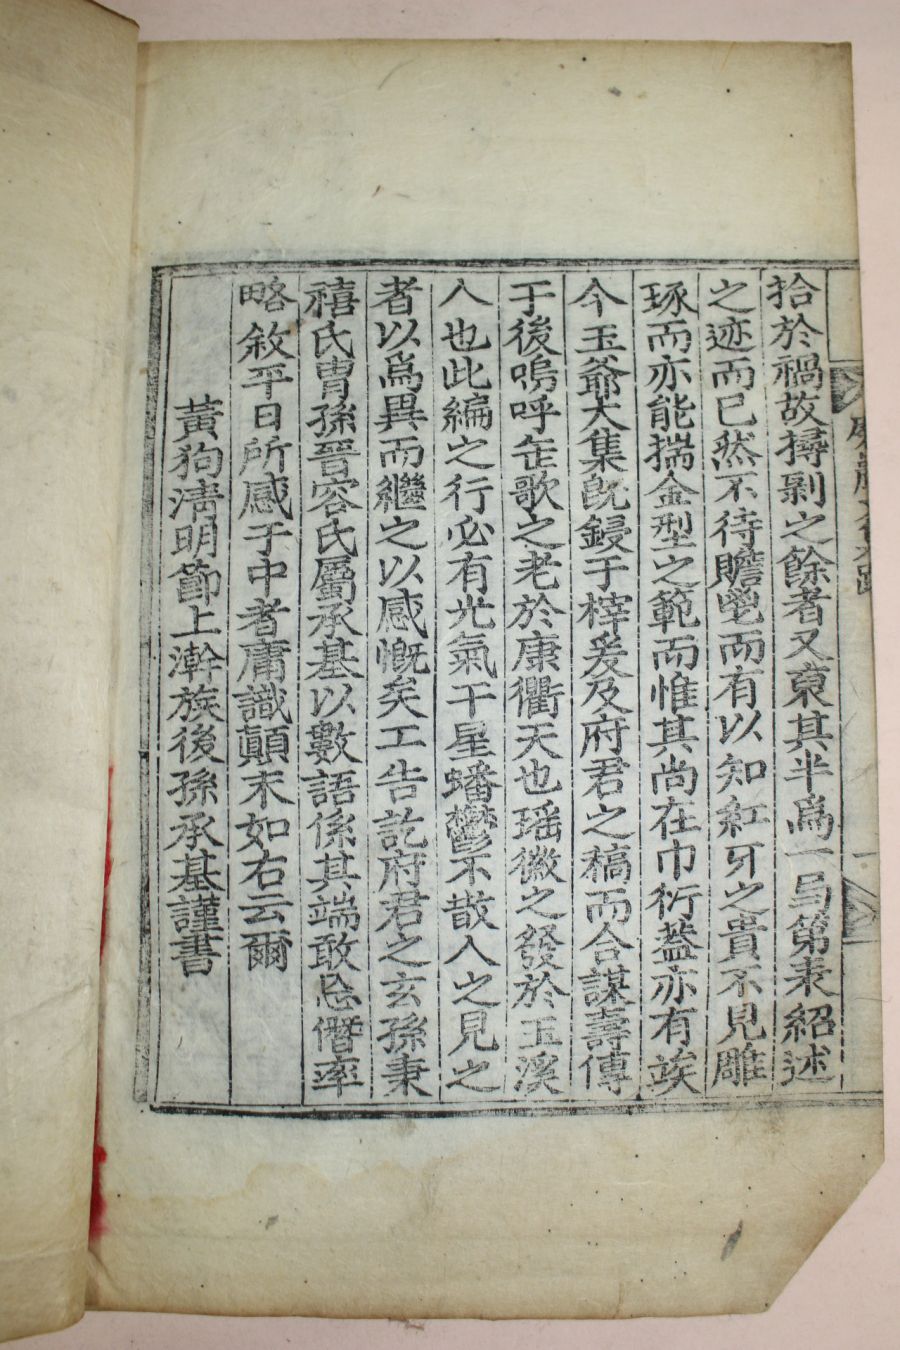 拾於禍故撏剝之餘者又裒其半爲一局第表紹述
之迹而已然不待贍鬯而有以知紅牙之貴不見雕
琢而亦能揣金型之範而惟其尚在巾衍蓋亦有竢
今玉爺大集旣鋟于梓爰及府君之稿而合謀壽傳
于後嗚呼缶歌之老於康衢天也瑶徽之發於玉溪
人也此編之行必有光氣干星蟠鬱不散人之見之
者以爲異而繼之以感慨矣工告訖府君之玄孫秉
禧氏胄孫晉容氏屬承基以數語係其端敢忘僭率
略敘平日所感于中者庸識顚末如右云爾
黃狗淸明節上澣族後孫承基謹書